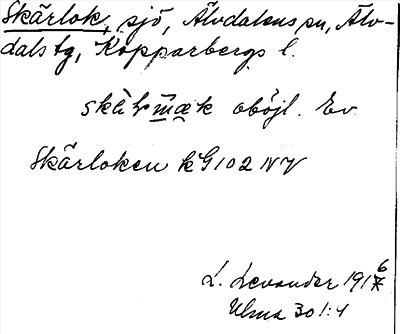 Skärlok, sjö, Älvdalens sn, Älv-
dals tg, Kopparbergs l.
oböjl. Ev
Skärloken kG 102 NV
L. Levander 1916
Ulma 301:4